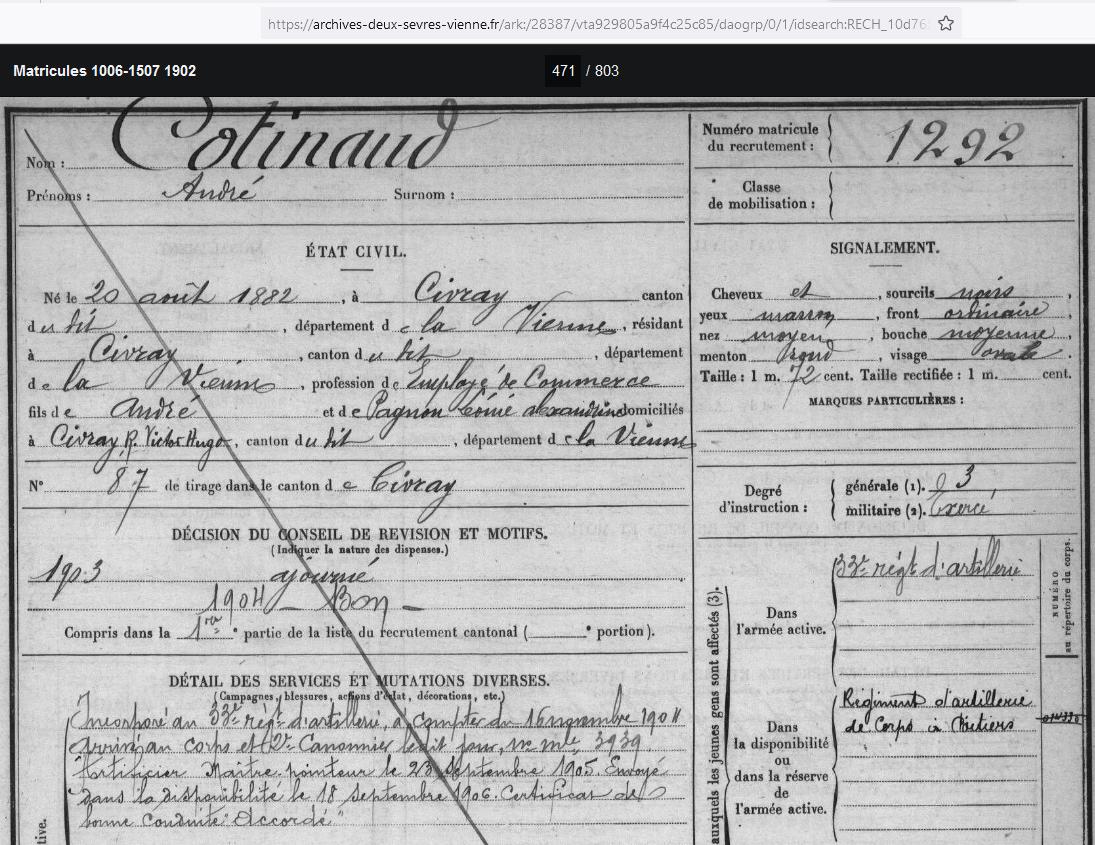 https://archives-deux-sevres-vienne.fr/ark:/28387/vta929805a9f4c25c85/daogrp/0/1/idsearch:RECH_10d76
Matricules 1006-1507 1902
471 / 803
Nom : Cotinaud
Prénoms : André Surnom :
Numéro matricule du recrutement : 1292
Classe de mobilisation :
ÉTAT CIVIL.
Né le 20 août 1882, à Civray canton
du dit, département de la Vienne, résidant
à Civray, canton du dit, département
de la Vienne, profession d'Employé de Commerce
fils de André et de Pagnon Alexandrine domiciliés
à Civray, R. Victor Hugo, canton du dit, département de la Vienne
N° 87 de tirage dans le canton de Civray
SIGNALEMENT.
Cheveux et, sourcils noirs,
yeux marron, front ordinaire,
nez moyen, bouche moyenne
menton rond, visage ovale.
Taille : 1 m. 72 cent. Taille rectifiée : 1 m. cent.
MARQUES PARTICULIÈRES :
Degré d'instruction :
générale (1). 3
militaire (2). Exercé
DÉCISION DU CONSEIL DE REVISION ET MOTIFS.
(Indiquer la nature des dispenses.)
1903 ajourné
1904 – Bon –
Compris dans la 1re partie de la liste du recrutement cantonal ( portion).
DÉTAIL DES SERVICES ET MUTATIONS DIVERSES.
(Campagnes, blessures, actions d'éclat, décorations, etc.)
Incorporé au 33e régt d'artillerie, à compter du 16 novembre 1904
arrivé au corps et 2e Canonnier le dit jour, no mle 3939.
Artificier Maître pointeur le 23 Septembre 1905. Envoyé
dans la disponibilité le 18 Septembre 1906. Certificat de
bonne conduite "Accordé"
auxquels les jeunes gens sont affectés (3).
Dans l'armée active.
33e régt d'artillerie
NUMÉRO au répertoire du corps.
Dans la disponibilité ou dans la réserve de l'armée active.
Régiment d'artillerie
de Corps à Poitiers
tive.